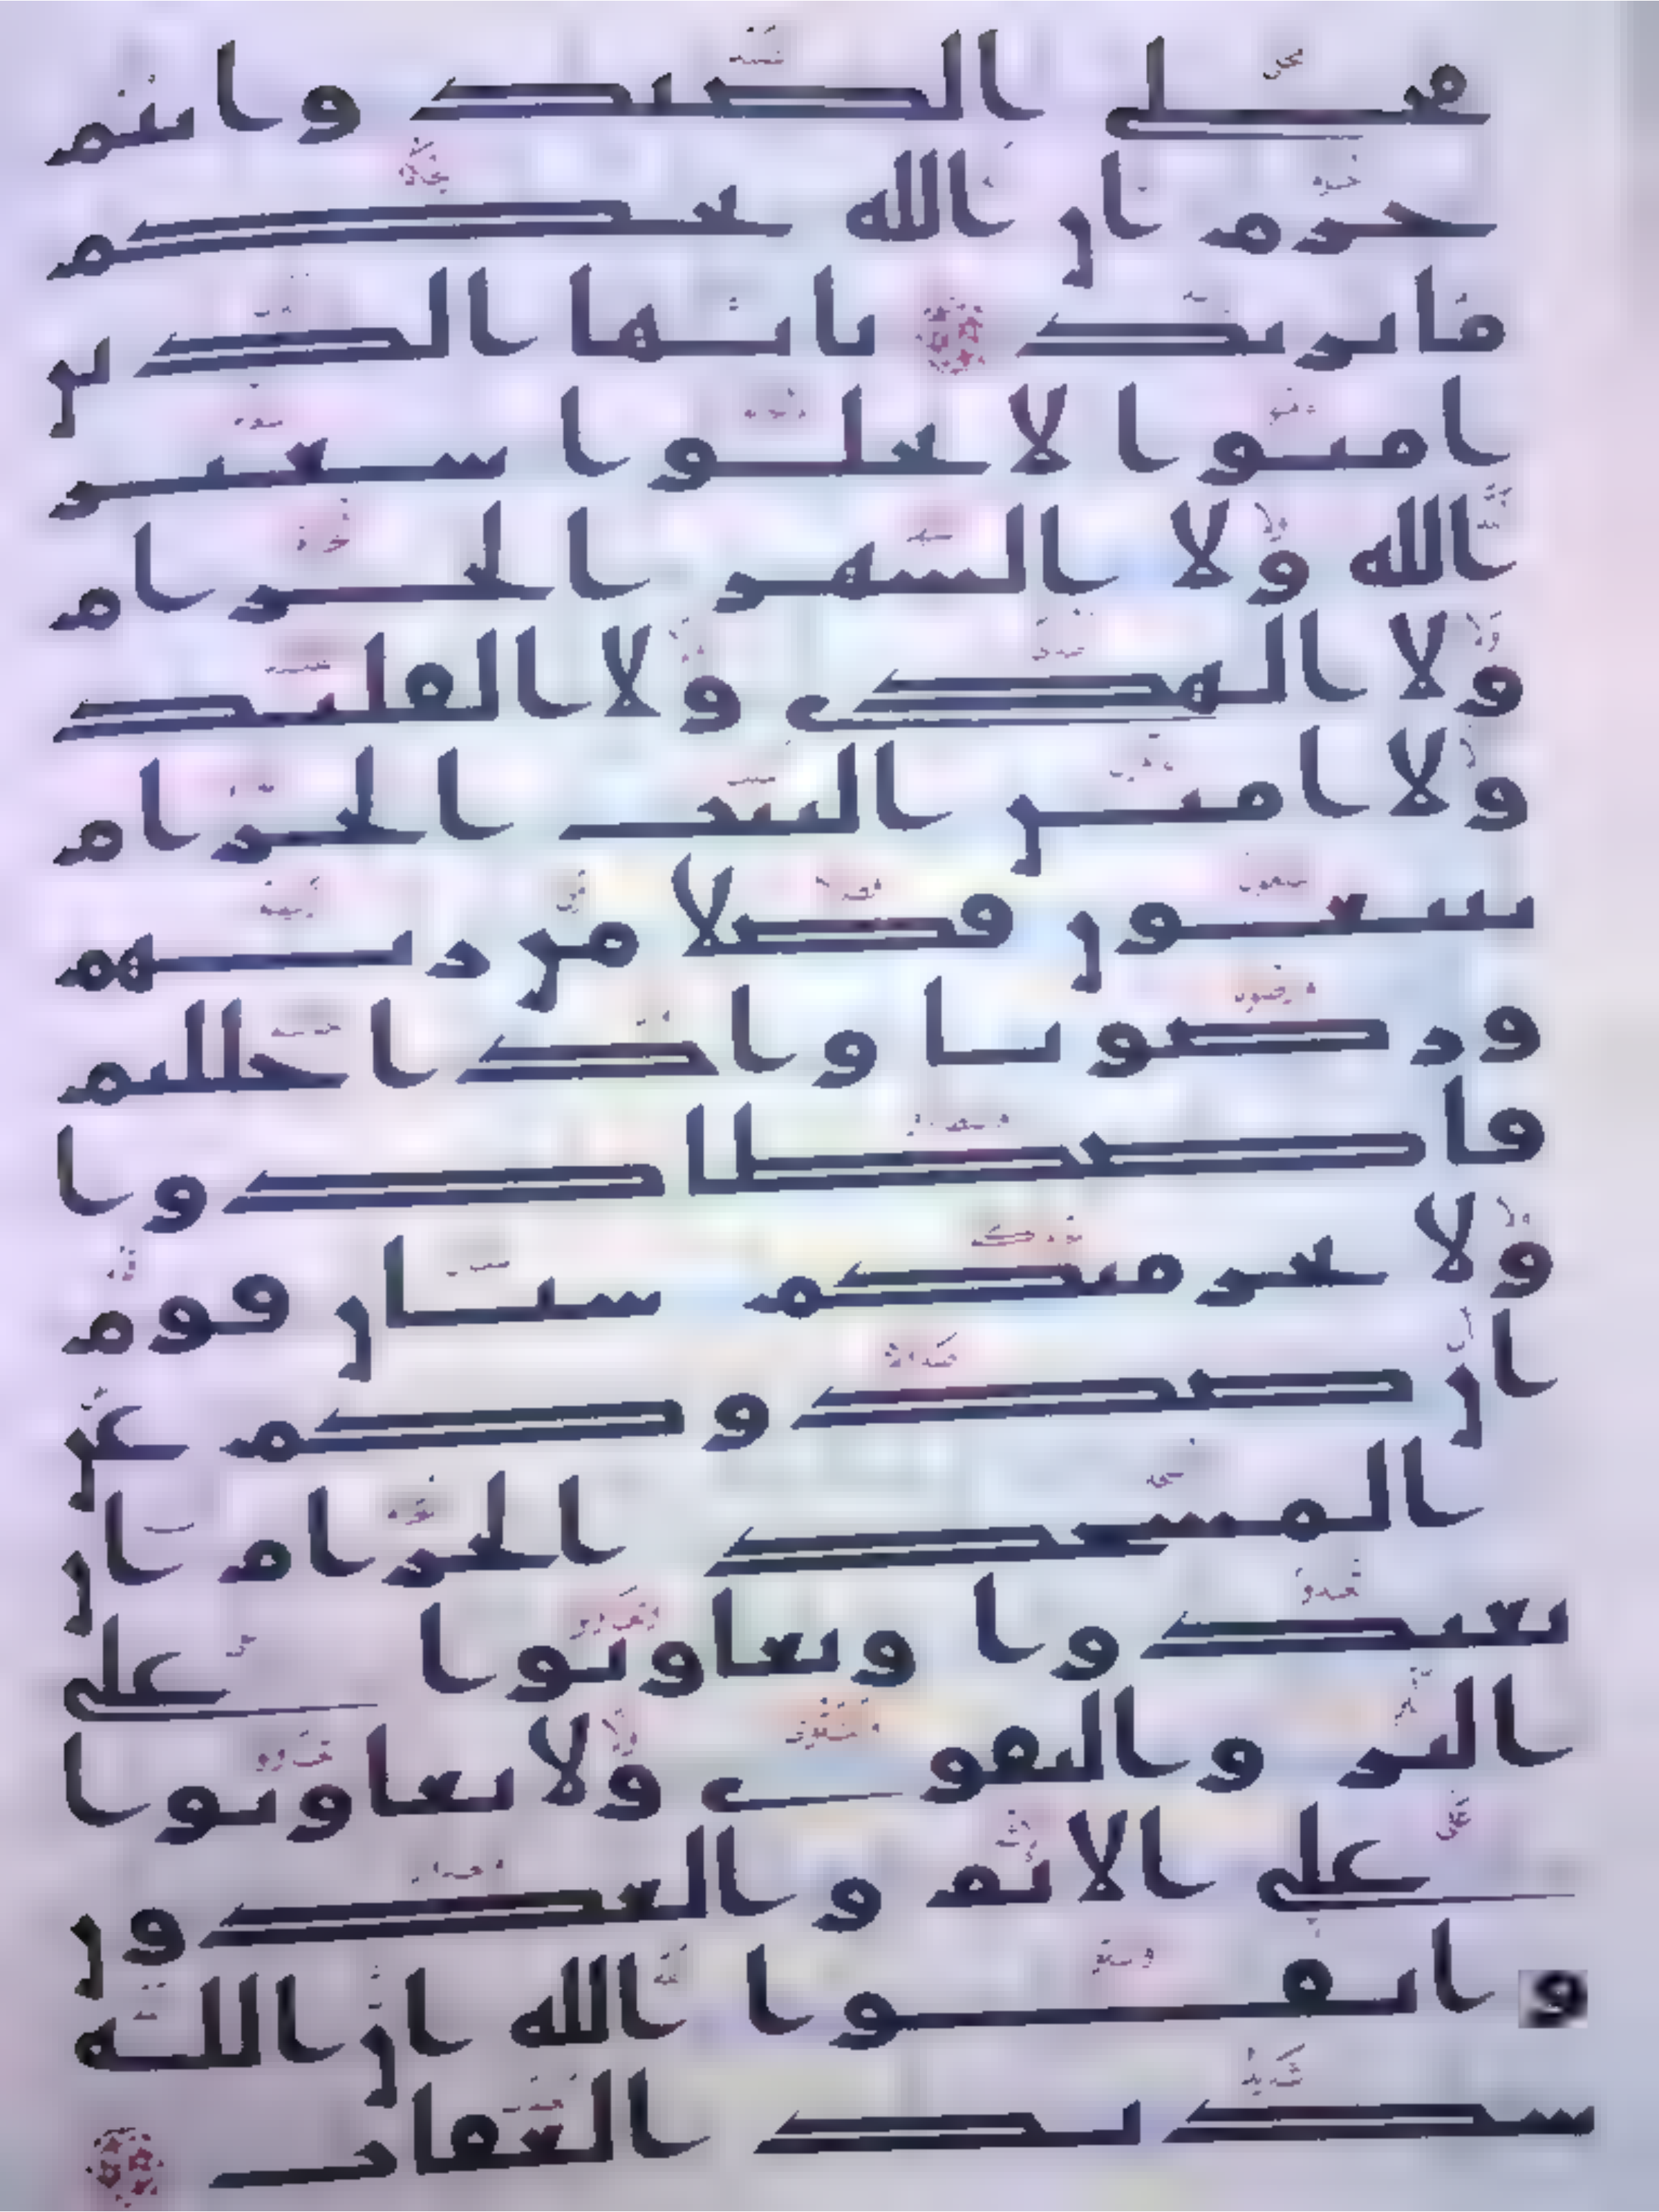 محلى الصيد وانتم
حرم ان الله يحكم
ما يريد يايها الذين
امنوا لا تحلوا شعئر
الله ولا الشهر الحرام
ولا الهدى ولا القلئد
ولا امين البيت الحرام
يبتغون فضلا من ربهم
ورضونا واذا حللتم
فاصطادوا
ولا يجرمنكم شنان قوم
ان صدوكم عن
المسجد الحرام ان
تعتدوا وتعاونوا على
البر والتقوى ولا تعاونوا
على الاثم والعدون
واتقوا الله ان الله
شديد العقاب